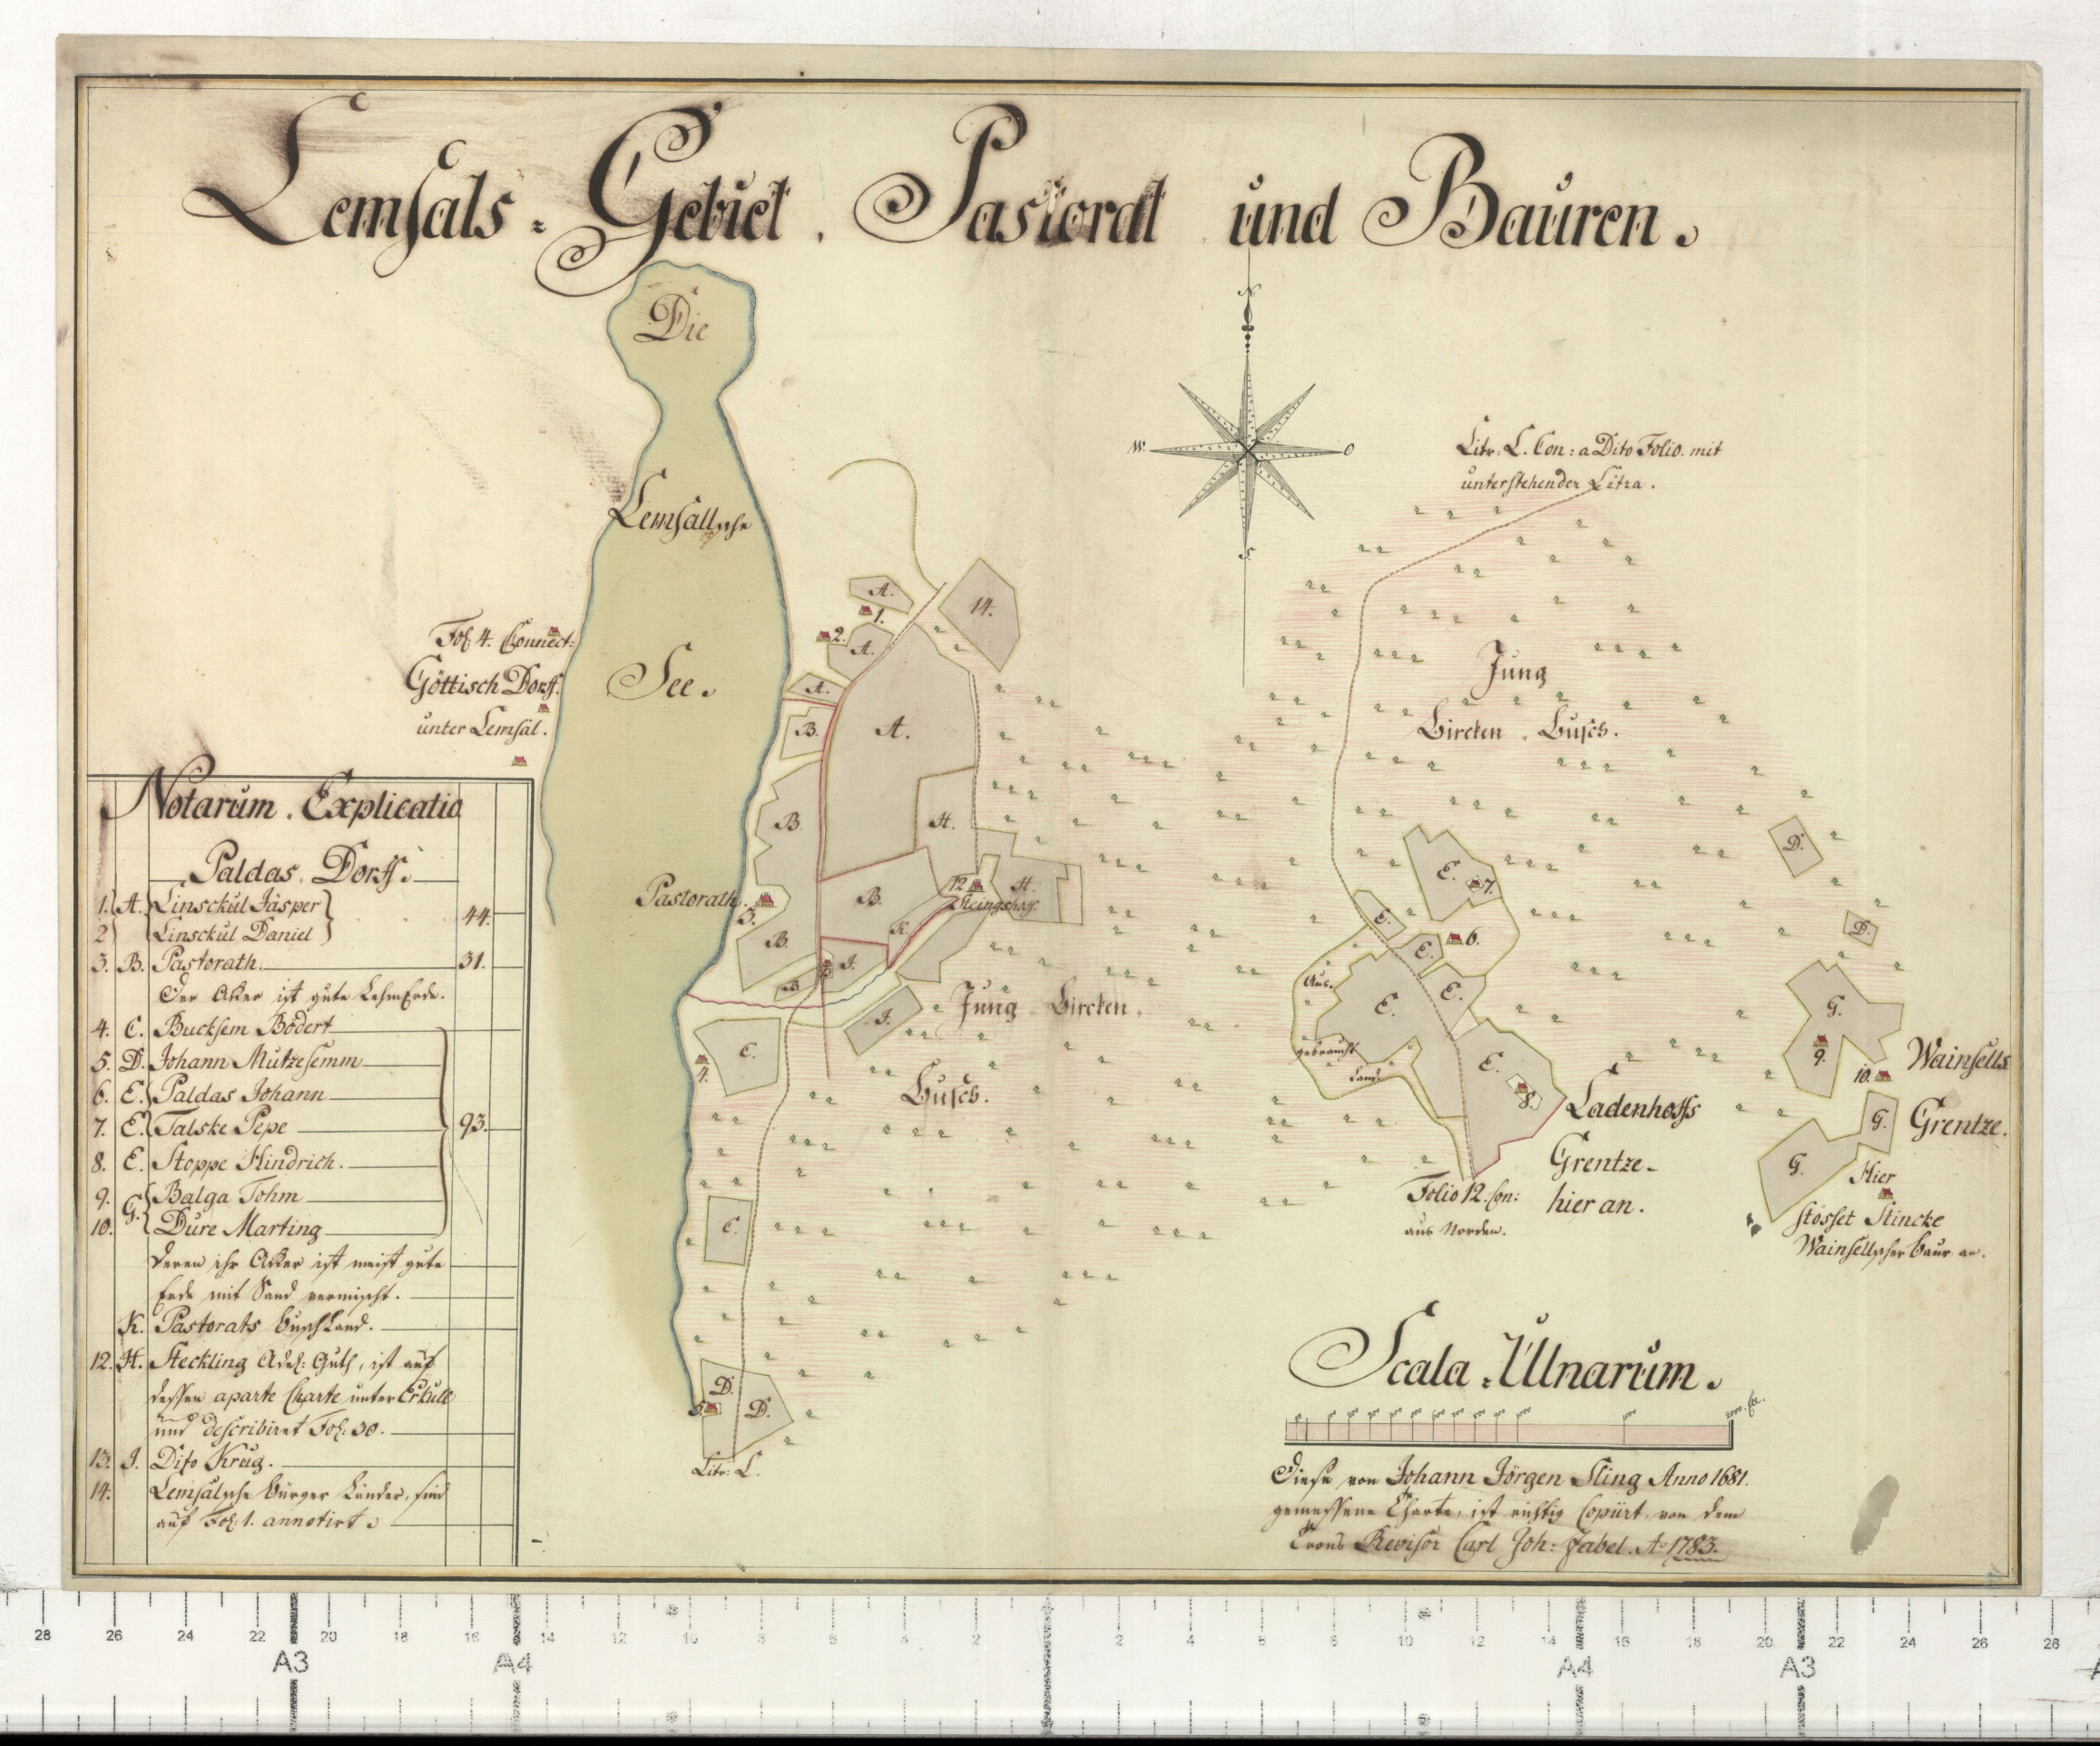 Lemsals = Gebiet . Pastorat und Bauren.
Die
Lemsallsche
See.
N.
W.
O
S.
Litr. L. Con: a Dito Folio. mit
unterstehender Litra.
Fol: 4. Connect:
Göttisch Dorff.
unter Lemsal.
A.
1.
2.
A.
14.
A.
B.
A.
B.
H.
Pastorath.
3.
B.
B.
12
H.
K.
J.
B.
J.
Jung Bircken.
Busch.
C.
4.
C.
D.
5.
D.
Litr: L.
Jung
Bircken . Busch.
E.
7.
E.
E.
6.
E.
E.
E.
8.
Aus.
gebraucht
Land.
D.
D.
G.
9.
10.
G.
G.
Wainsells
Grentze.
Ladenhoffs
Grentze.
hier an.
Folio 12. Con:
aus Norden.
Hier
stösset Stincke
Wainsellscher Baur an.
Notarum . Explicatio
Paldas . Dorff.
1. A. Linsckul Jasper
2 Linsckul Daniel
44.
3. B. Pastorath. 31.
Der Acker ist gute LehmErde.
4. C. Bucksem Bodert
5. D. Johann Mutzesemm
6. E. Paldas Johann
7. E. Talske Pepe 93.
8. E. Stoppe Hindrich.
9. G. Balga Tohm
10. Dure Marting
deren ihr Acker ist meist gute
Erde mit Sand vermischt.
K. Pastorats BuschLand.
12. H. Steckling Adel: Guth, ist auf
dessen aparte Charte unter Erkull
und describiret Fol: 30.
13. J. Dito Krug.
14. Lemsalsche Bürger Länder, sind
auf Fol: 1. annotirt.
Scala . Ulnarum.
Diese von Johann Jörgen Sling Anno 1681.
gemessene Charte, ist richtig Copiirt von dem
Crons Revisor Carl Joh: Zabel. Ao 1783.
28 26 24 22 20 18 16 14 12 10 8 6 4 2 2 4 6 8 10 12 14 16 18 20 22 24 26 28
A3 A4 A4 A3